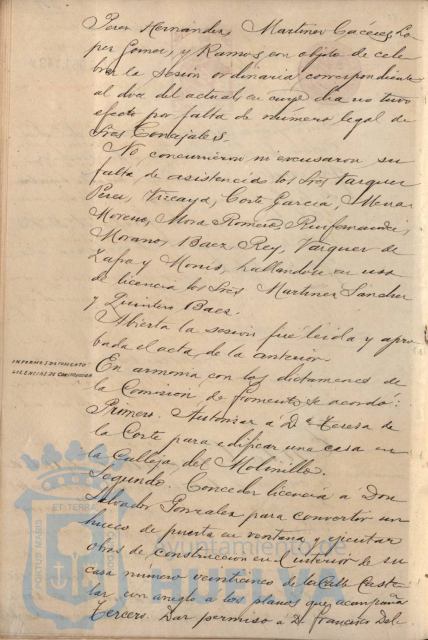 Perez Hernández, Martinez Cáceres, Lo
pez Gomez, y Ramos, con objeto de cele
brar la sesión ordinaria correspondiente
al dia del actual, en cuyo dia no tuvo
efecto por falta de número legal de
Sres Concejales.
No concurrieron ni excusaron su
falta de asistencia los Sres Vazquez
Perez, Vizcaya, Corte Garcia, Mena
Moreno, Mora Romero, Rinfernandez,
Morano, Baez Rey, Vazquez de
Zafra y Monis, hallandose en uso
de licencia los Sres Martinez Sanchez
y Quintero Baez.
Abierta la sesión fué leida y apro
bada el acta de la anterior.
INFORMES DE FOMENTO
LICENCIAS DE CONSTRUCCION
En armonia con los dictamenes de
la Comisión de fomento se acordó:
Primero. Autorizar á Dª Teresa de
la Corte para edificar una casa en
la Calleja del Molinillo.
Segundo. Conceder licencia á Don
Salvador Gonzalez para convertir un
hueco de puerta en ventana y ejecutar
obras de construcción en el interior de su
casa número veintiunco de la Calle Caste
lar con arreglo á los planos que acompaña
Tercero. Dar permiso a D. Francisco Del
ET TERRA
PORTUS MARIS
CUSTODIA
Ayuntamiento de
HUELVA